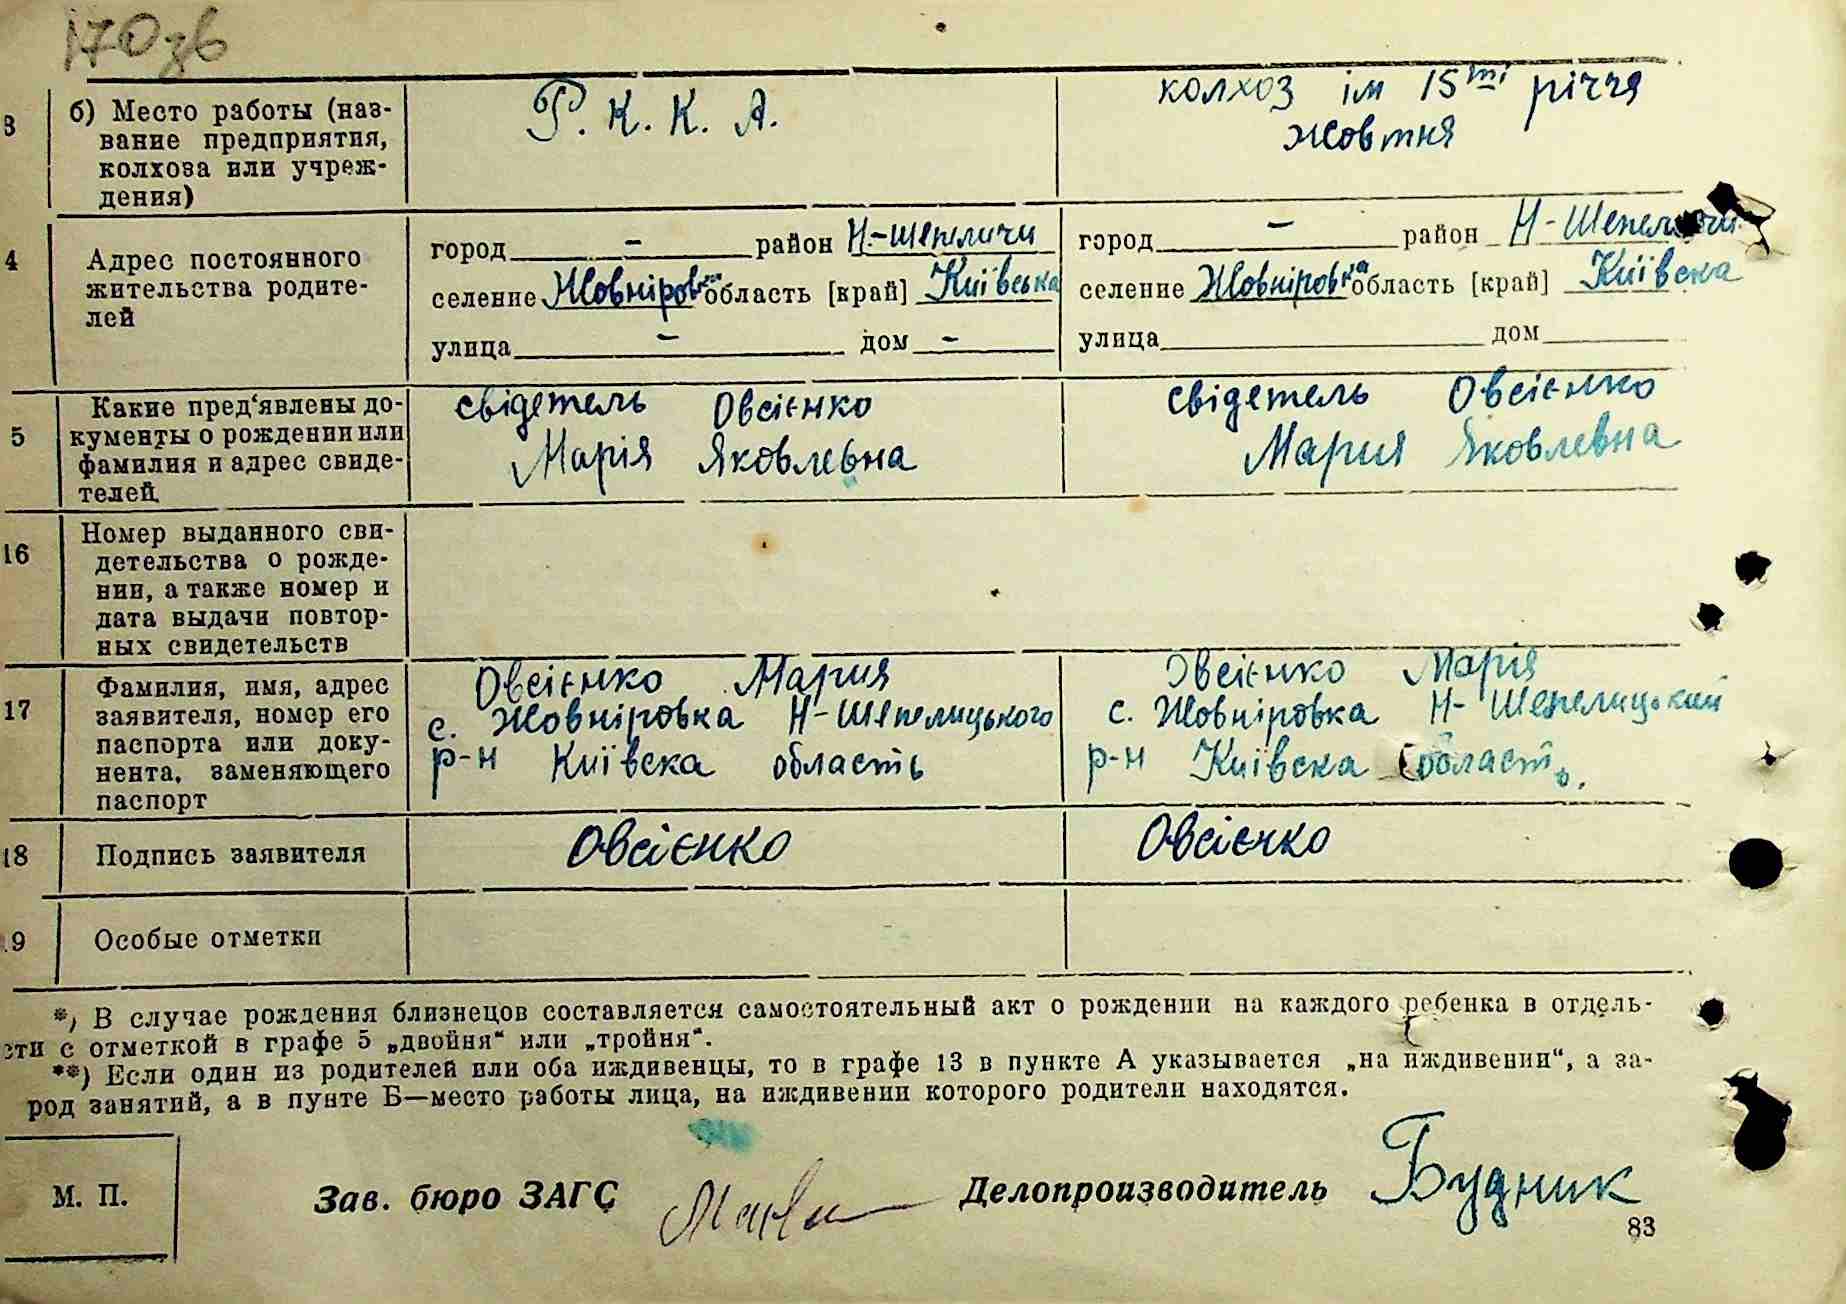 170зв
3 б) Место работы (наз- Р. К. К. А. колхоз ім 15ті річчя
вание предприятия, Жовтня
колхоза или учреж-
дения)
4 Адрес постоянного жительства родите- лей
город - район Н-Шепеличи город - район Н-Шепеличи
селение Жовніровка область [край] Київська селение Жовніровка область [край] Київска
улица - дом - улица дом
5 Какие пред'явлены до- свідетель Овсієнко свідетель Овсієнко
кументы о рождении или Марія Яковлевна Мария Яковлевна
фамилия и адрес свиде-
телей
16 Номер выданного сви-
детельства о рожде-
нии, а также номер и
дата выдачи повтор-
ных свидетельств
17 Фамилия, имя, адрес Овсієнко Мария Овсієнко Марія
заявителя, номер его с. Жовніровка Н-Шепелицького с. Жовніровка Н-Шепелицький
паспорта или доку- р-н Київска область р-н Київска область.
нента, заменяющего
паспорт
18 Подпись заявителя Овсієнко Овсієнко
9 Особые отметки
*) В случае рождения близнецов составляется самостоятельный акт о рождении на каждого ребенка в отдель-
сти с отметкой в графе 5 „двойня“ или „тройня“.
**) Если один из родителей или оба иждивенцы, то в графе 13 в пункте А указывается „на иждивении“, а за-
род занятий, а в пункте Б—место работы лица, на иждивении которого родители находятся.
М. П. Зав. бюро ЗАГС Делопроизводитель Будник
83